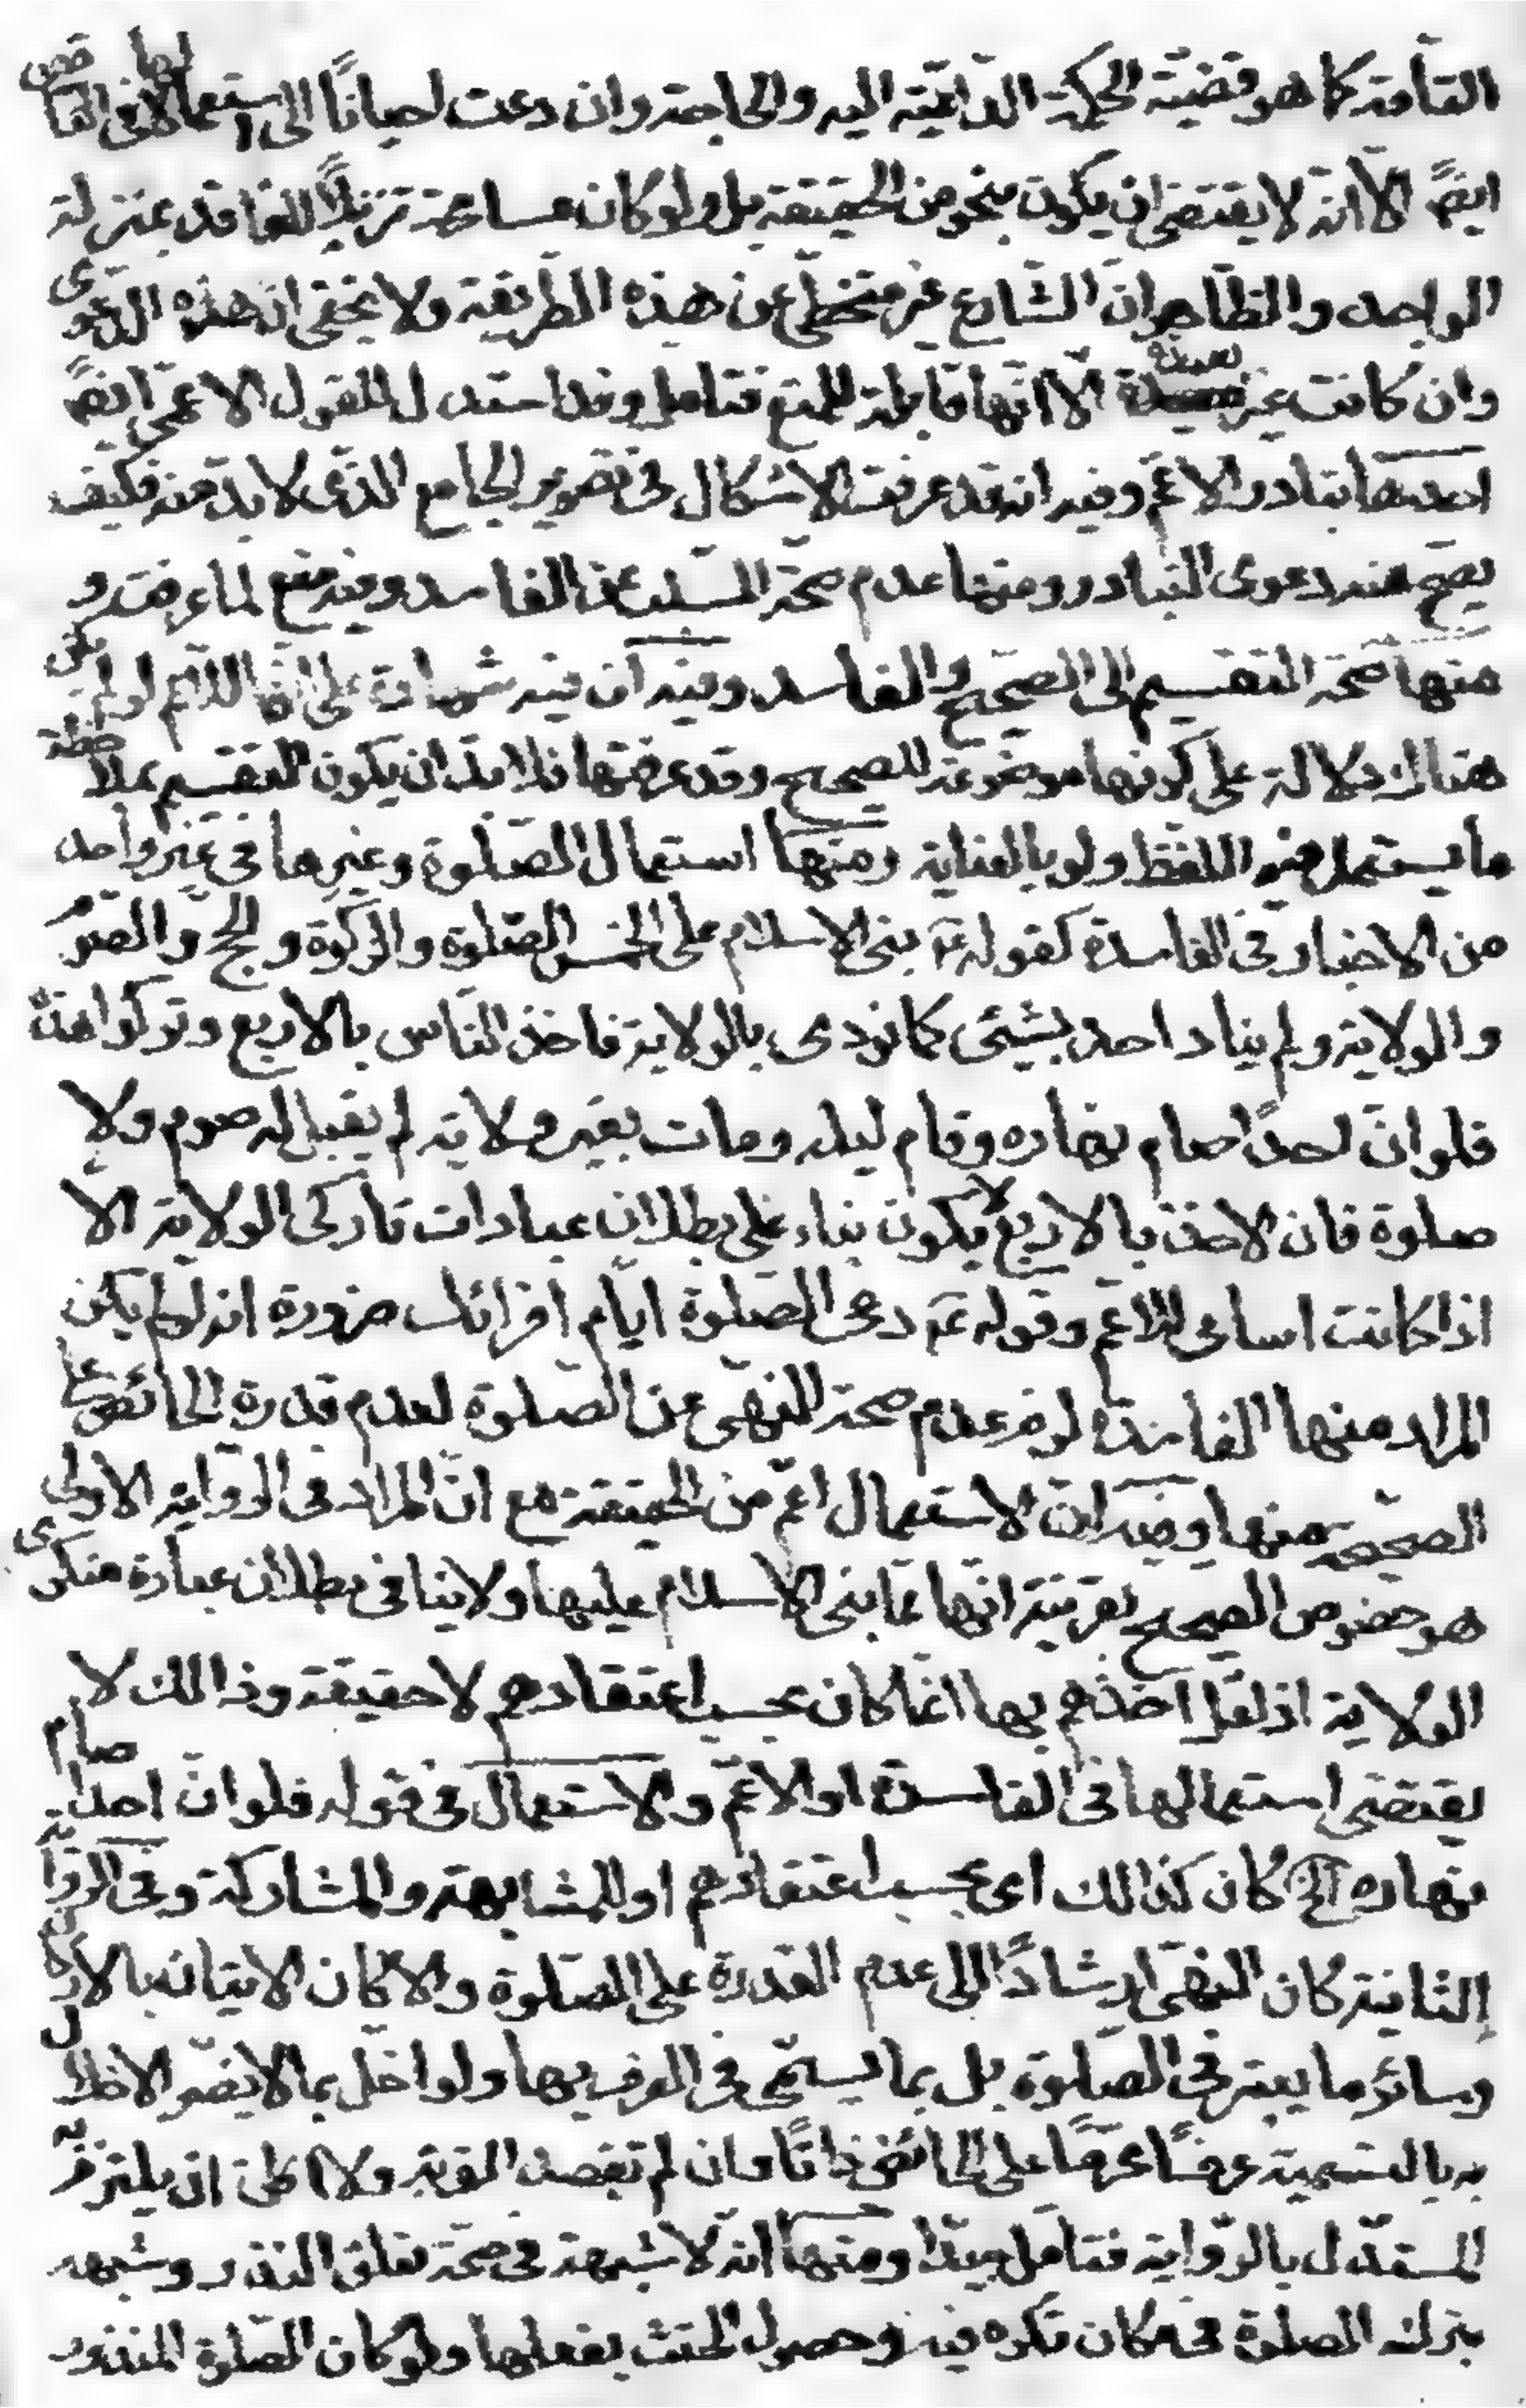 التامة كما هو قضية الحكمة الداعية اليه والحاجة وان دعت احيانا الى استعمالها فى الناقص
ايضً الا انه لا يقتضى ان يكون بنحو من الحقيقة بل ولو كان مسامحة تنزيلاً للفاقد بمنزلة
الواجد والظاهر ان الشارع غير متخطى عن هذه الطريقة ولا يخفى ان هذه الدعوى
وان كانت غير بعيدة الا انها قابلة للمنع فتامل وقد استدل للقول الاعمى ايضً
احدها تبادر الاعم وفيه انه قد عرفت الاشكال فى تصوير الجامع الذى لا بد منه فكيف
يصح معه دعوى التبادر ومنها عدم صحة السلب عن الفاسد وفيه منع لما عرفت و
منها صحة التقسيم الى الصحيح والفاسد وفيه ان فيه شهادة على انها للاعم لو لم يكن
هناك دلالة على كونها موضوعة للصحيح وقد عرفتها فلا بد ان يكون التقسيم بملاحظة
ما يستعمل فيه اللفظ ولو بالعناية ومنها استعمال الصلوة وغيرها فى غير واحد
من الاخبار فى الفاسدة كقوله عم بنى الاسلام على الخمس الصلوة والزكوة والحج والصوم
والولاية ولم يناد احد بشيئ كما نودى بالولاية فاخذ الناس بالاربع وتركوا هذه
فلو ان احداً صام نهاره وقام ليله ومات بغير ولاية لم يقبل له صوم ولا
صلوة فان الاخذ بالاربع لا يكون بناء على بطلان عبادات تاركى الولاية الا
اذا كانت اسامى للاعم وقوله عم دعى الصلوة ايام اقرائك ضرورة انه لو لم يكن
المراد منها الفاسدة لزم عدم صحة النهى عن الصلوة لعدم قدرة الحائض على
الصحيحة منها وفيه ان الاستعمال اعم من الحقيقة مع ان المراد فى الرواية الاولى
هو خصوص الصحيح بقرينة انها مما بنى الاسلام عليها ولا ينافى بطلان عبادة منكرى
الولاية اذ لعل اخذهم بها انما كان بحسب اعتقادهم لا حقيقة وذالك لا
يقتضى استعمالها فى الفاسدة او الاعم والاستعمال فى قوله فلو ان احدا صام
نهاره الخ كان كذالك اى بحسب اعتقادهم او للمشابهة والمشاركة وفى الرواية
الثانية كان النهى ارشاداً الى عدم القدرة على الصلوة والا كان الاتيان بالاركان
وسائر ما يعتبر فى الصلوة بل بما يسمى فى العرف بها ولو اخل بما لا يضر الاخلال
به بالتسمية عرفاً محرماً على الحائض ذاتاً وان لم تقصد القربة ولا اظن ان يلتزم به
المستدل بالرواية فتامل جيدا ومنها انه لا شبهة فى صحة تعلق النذر وشبهه
بترك الصلوة فى مكان تكره فيه وحصول الحنث بفعلها ولو كان الصلوة المنذور